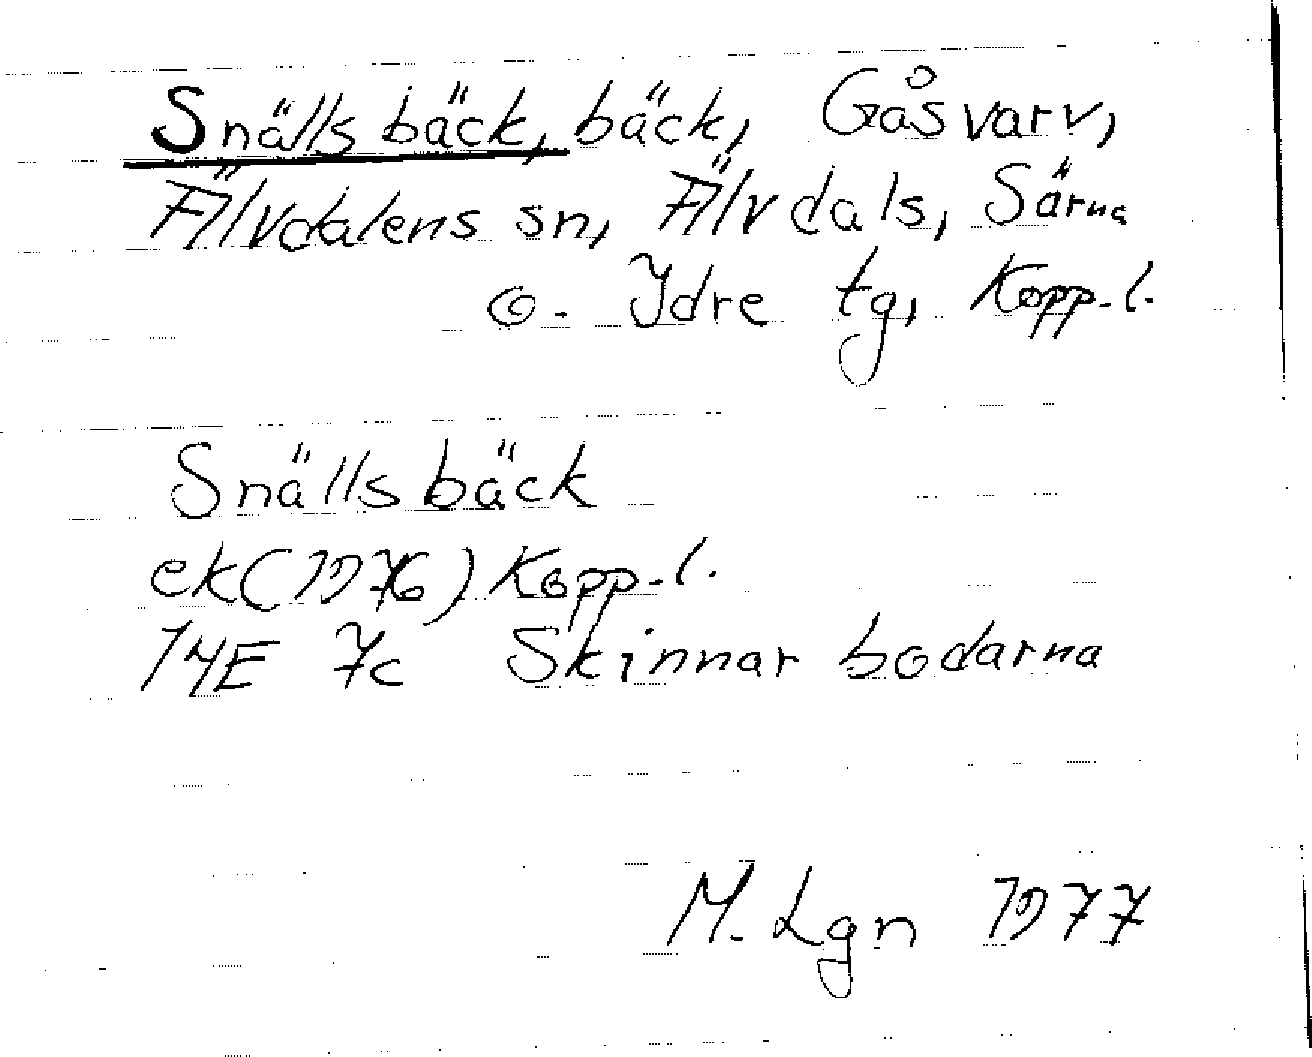 Snällsbäck, bäck, Gåsvarv,
Älvdalens sn, Älvdals, Särna
o. Idre tg, Kopp.l.
Snällsbäck
ek(1976) Kopp.l.
14E 7c Skinnarbodarna
M. Lgn 1977